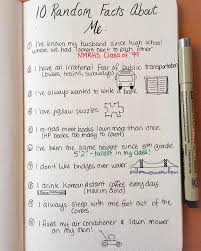 10 Random Facts About
Me:
① I've known my husband since high school
where we had lockers next to each other
NMRHS Class of '99
② I have an irrational fear of public transportation
(buses, trains, subways)
③ I've always wanted to write a book
④ I love jigsaw puzzles
⑤ I re-read most books I own more than once
(HP books, too many to count)
⑥ I've been the same height since 6th grade
5'2" - tallest in my class!
⑦ I don't like bridges over water
⑧ I drink Korean instant coffee every day
(Maxim Gold)
⑨ I always sleep with one feet out of the
covers
⑩ I fixed my air conditioner & lawn mower
on my own!